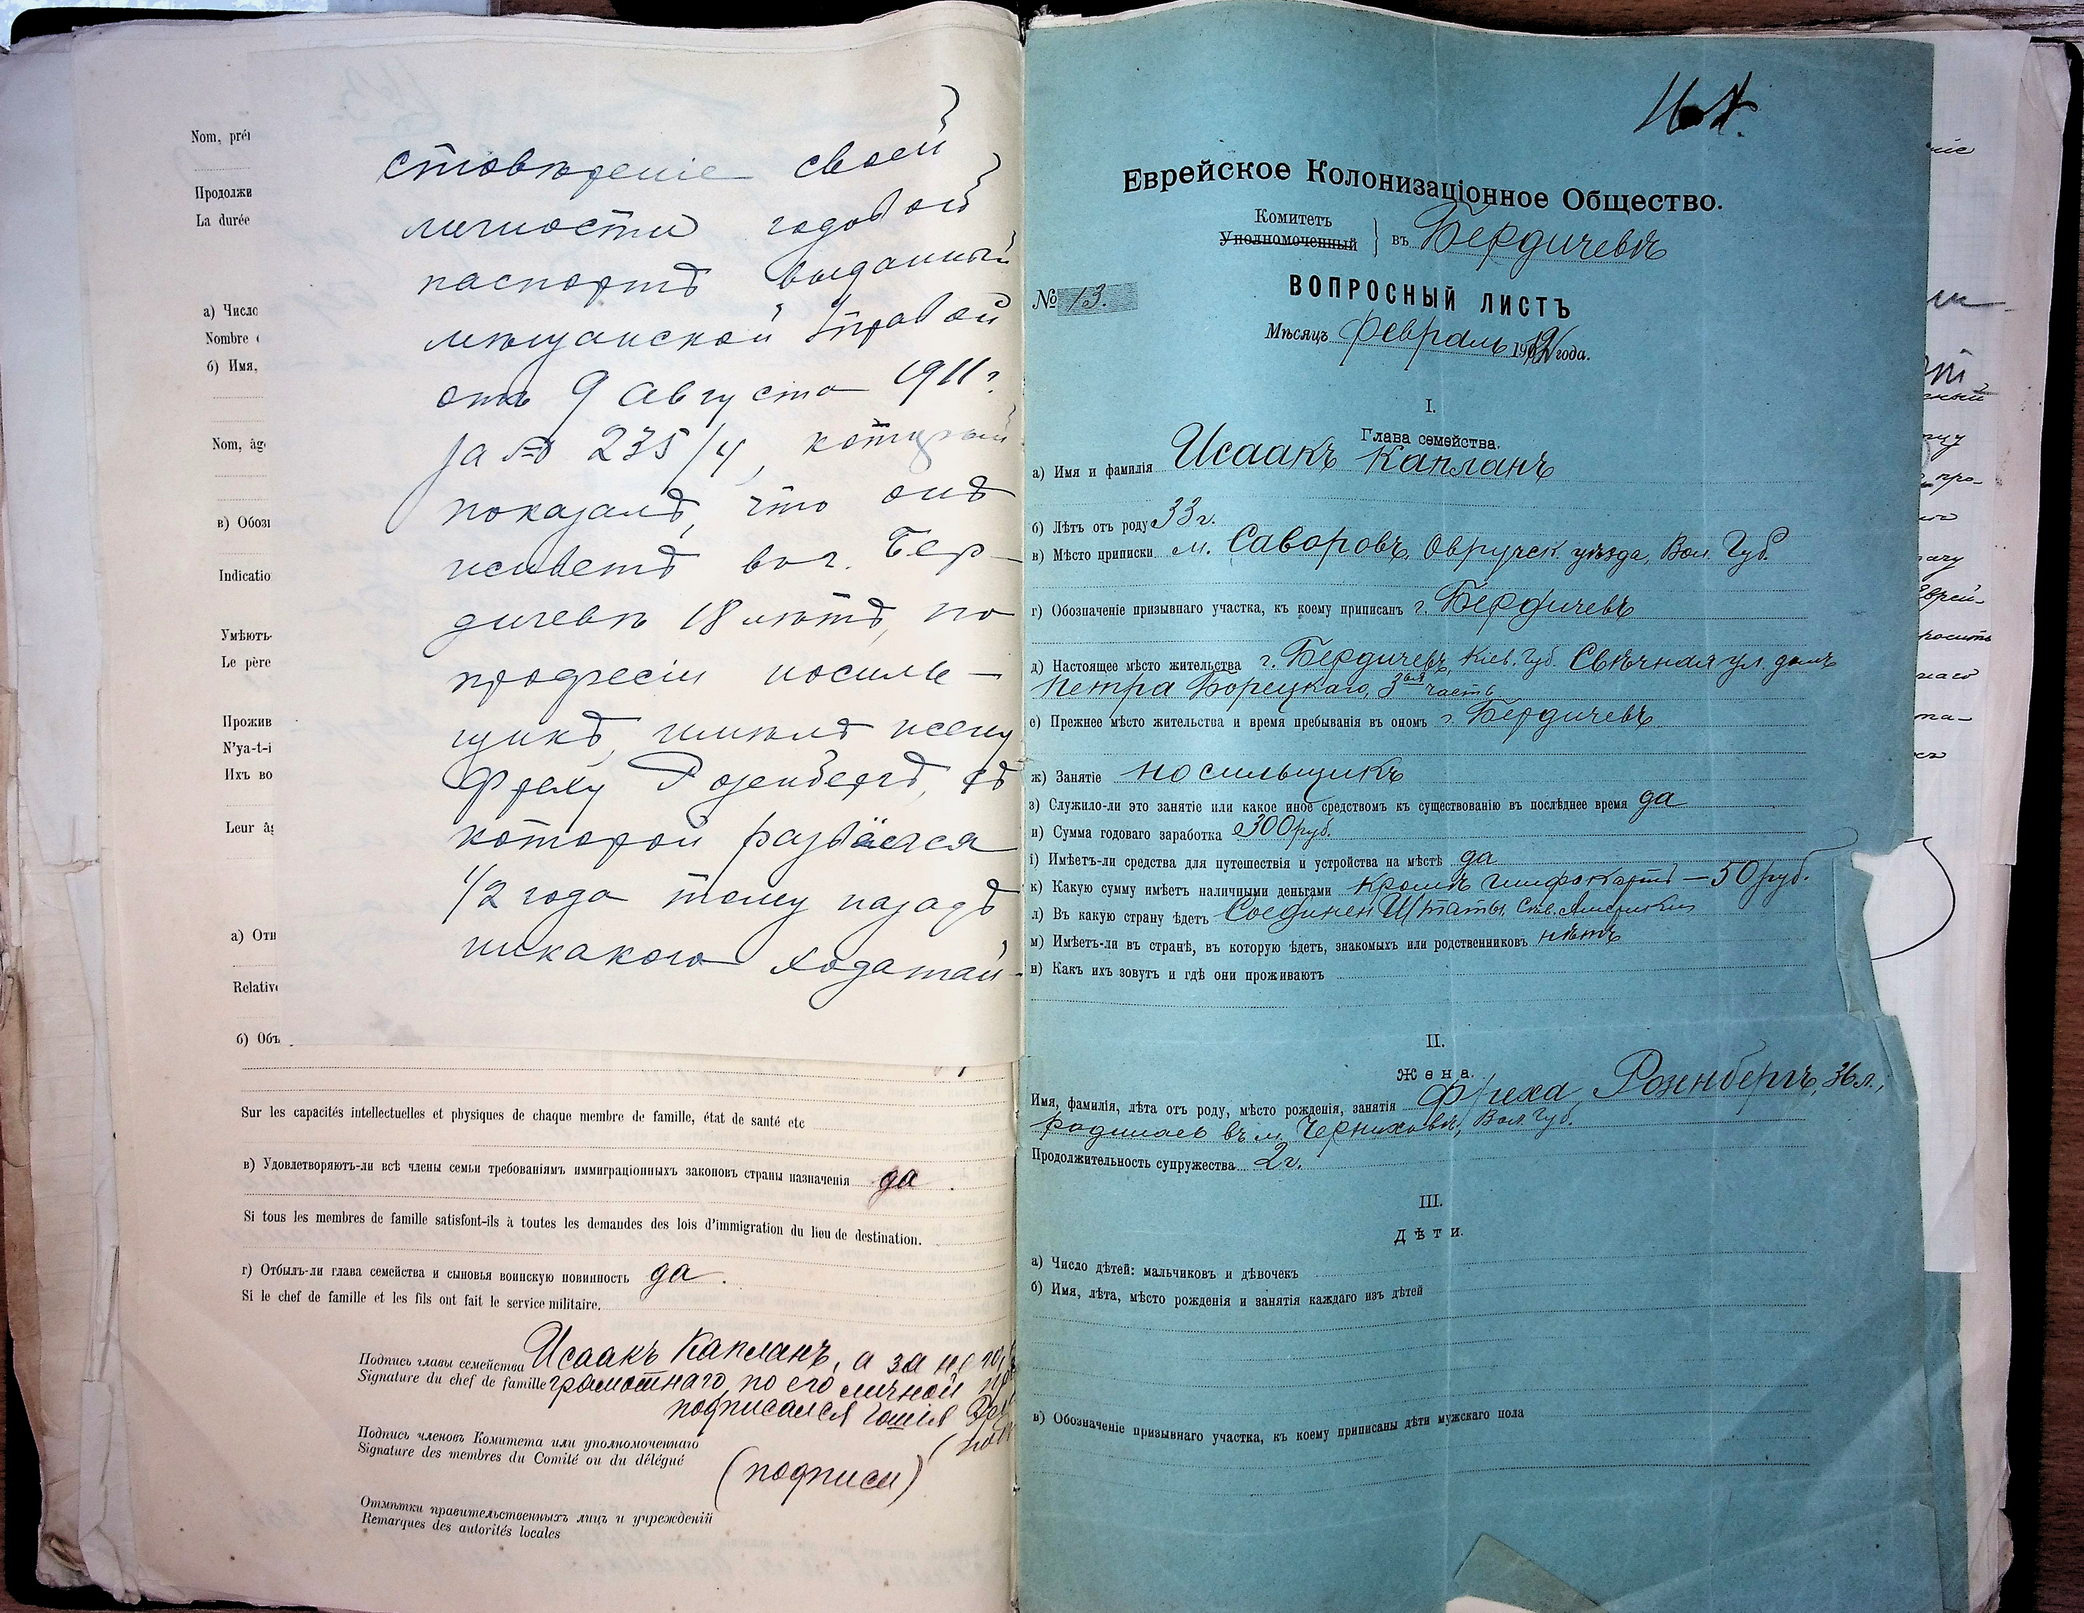 Nom, pré
Продолжи
La durée
а) Число
Nombre
б) Имя,
Nom, âg
в) Обоз
Indicatio
Умѣютъ
Le père
Прожив
N'ya-t-i
Ихъ во
Leur âg
а) Отн
Relativ
б) Объ
стовѣреніе своей
личности годовой
паспортъ выданный
мѣщанской Управой
отъ 9 Августа 1911 г.
за № 235/4, который
показалъ, что онъ
живетъ въ г. Бер-
дичевѣ 18 лѣтъ, по
профессіи носиль-
щикъ, имѣлъ жену
Фреху Розенбергъ, съ
которой развелся
1/2 года тому назадъ
никакого ходатай-
Sur les capacités intellectuelles et physiques de chaque membre de famille, état de santé etc
в) Удовлетворяютъ-ли всѣ члены семьи требованіямъ иммиграціонныхъ законовъ страны назначенія да
Si tous les membres de famille satisfont-ils à toutes les demandes des lois d'immigration du lieu de destination.
г) Отбылъ-ли глава семейства и сыновья воинскую повинность да.
Si le chef de famille et les fils ont fait le service militaire.
Подпись главы семейства Исаакъ Капланъ, а за не
Signature du chef de famille грамотнаго, по его личной
подписался
Подпись членовъ Комитета или уполномоченнаго
Signature des membres du Comité ou du délégué
(подписи)
Отмѣтки правительственныхъ лицъ и учрежденій
Remarques des autorités locales
Еврейское Колонизаціонное Общество.
Комитетъ
Уполномоченный } въ Бердичевѣ
ВОПРОСНЫЙ ЛИСТЪ
№ 13.
Мѣсяцъ февраль 1912 года.
I.
Глава семейства.
а) Имя и фамилія Исаакъ Капланъ
б) Лѣтъ отъ роду 33 г.
в) Мѣсто приписки м. Саворовъ, Овручск. уѣзда, Вол. Губ.
г) Обозначеніе призывнаго участка, къ коему приписанъ г. Бердичевъ
д) Настоящее мѣсто жительства г. Бердичевъ, Кіев. Губ. Свѣчная ул. домъ
Петра Борецкаго, 3ья часть
е) Прежнее мѣсто жительства и время пребыванія въ ономъ г. Бердичевъ
ж) Занятіе носильщикъ
з) Служило-ли это занятіе или какое иное средствомъ къ существованію въ послѣднее время да
и) Сумма годоваго заработка 300 руб.
і) Имѣетъ-ли средства для путешествія и устройства на мѣстѣ да
к) Какую сумму имѣетъ наличными деньгами кромѣ шифскартъ — 50 руб.
л) Въ какую страну ѣдетъ Соединен Штаты, Сѣв. Америки
м) Имѣетъ-ли въ странѣ, въ которую ѣдетъ, знакомыхъ или родственниковъ нѣтъ
н) Какъ ихъ зовутъ и гдѣ они проживаютъ
II.
Жена.
Имя, фамилія, лѣта отъ роду, мѣсто рожденія, занятія Фреха Розенбергъ, 36 л.,
родилась въ м. Черняховѣ, Вол. Губ.
Продолжительность супружества 2 г.
III.
Дѣти.
а) Число дѣтей: мальчиковъ и дѣвочекъ
б) Имя, лѣта, мѣсто рожденія и занятія каждаго изъ дѣтей
в) Обозначеніе призывнаго участка, къ коему приписаны дѣти мужскаго пола